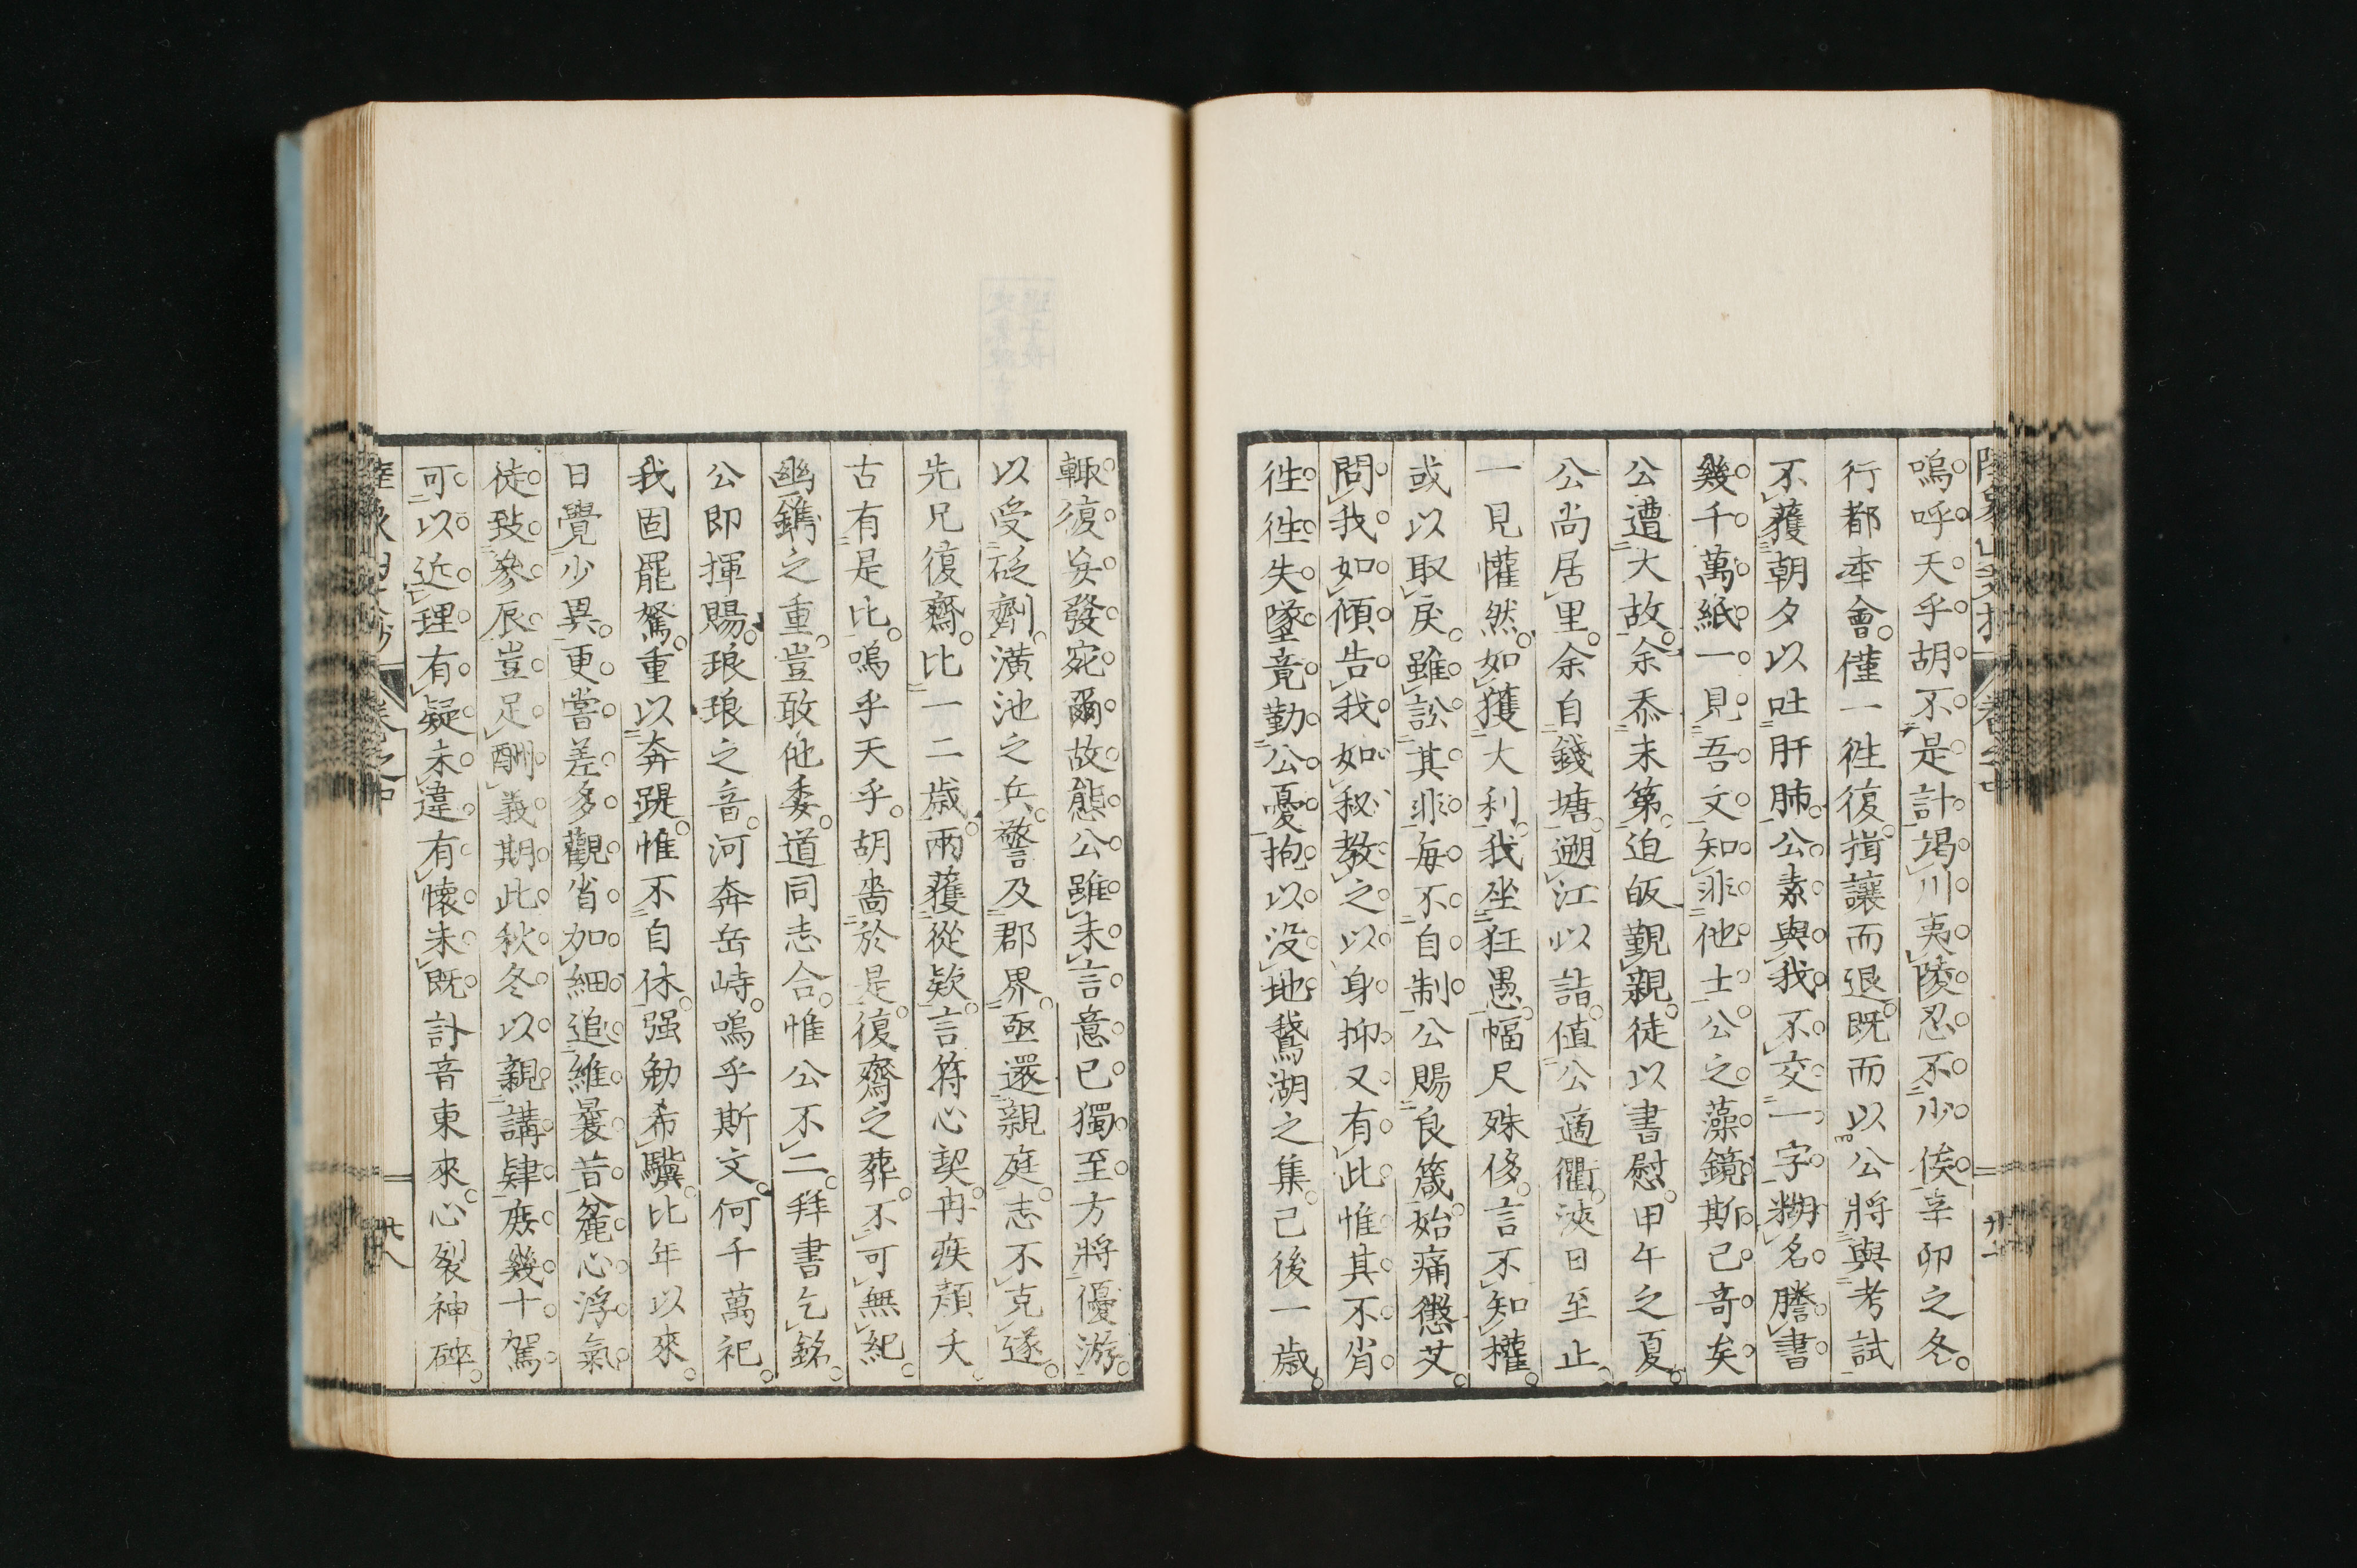 嗚呼天乎胡不是計竭川夷陵忍不少俟辛卯之冬
行都幸會僅一徃復揖讓而退既而以公將與考試
不獲朝夕以吐肝肺公素與我不交一字糊名謄書
幾千萬紙一見吾文知非他士公之藻鏡斯已奇矣
公遭大故余忝末第迫皈覲親徒以書慰甲午之夏
公尚居里余自錢塘遡江以詣值公適衢浹日至止
一見懽然如獲大利我坐狂愚幅尺殊侈言不知權
或以取戾雖訟其非每不自制公賜良箴始痛懲艾
問我如傾告我如秘教之以身抑又有此惟其不肖
徃徃失墜竟勤公憂抱以没地鵞湖之集己後一歳
輙復妄發宛爾故態公雖未言意已獨至方將優游
以受砭劑潢池之兵警及郡界亟還親庭志不克遂
先兄復齋比一二歳兩獲從欵言符心契冉疾顔夭
古有是比嗚乎天乎胡嗇於是復齋之葬不可無紀
幽鐫之重豈敢他委道同志合惟公不二拜書乞銘
公即揮賜琅琅之音河奔岳峙嗚乎斯文何千萬祀
我固罷駑重以奔踶惟不自休强勉希驥比年以來
日覺少異更嘗差多觀省加細追維曩昔麄心浮氣
徒致參辰豈足酬義期此秋冬以親講肄庻幾十駕
可以近理有疑未違有懷未既訃音東來心裂神碎
卷之中